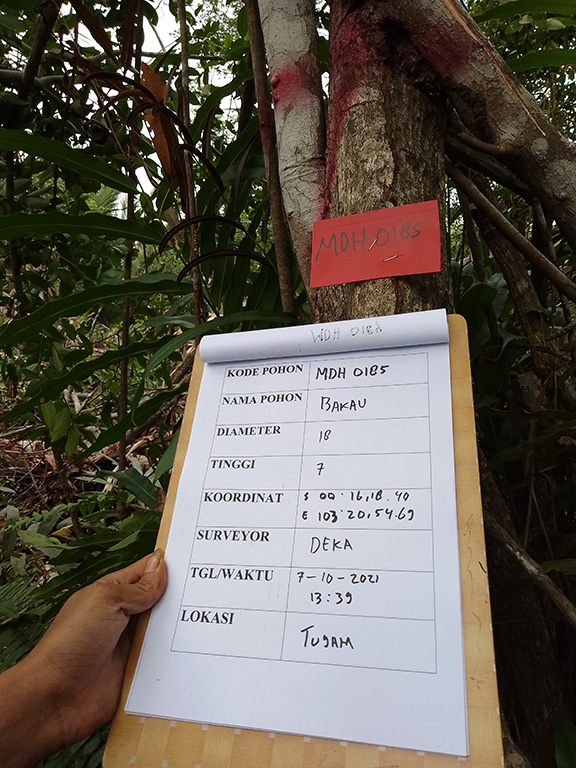 MDH 0185
KODE POHON MDH 0185
NAMA POHON BAKAU
DIAMETER 18
TINGGI 7
KOORDINAT S 00° 16, 18. 40
E 103° 20, 54.69
SURVEYOR DEKA
TGL/WAKTU 7-10-2021
13:39
LOKASI TUJAM